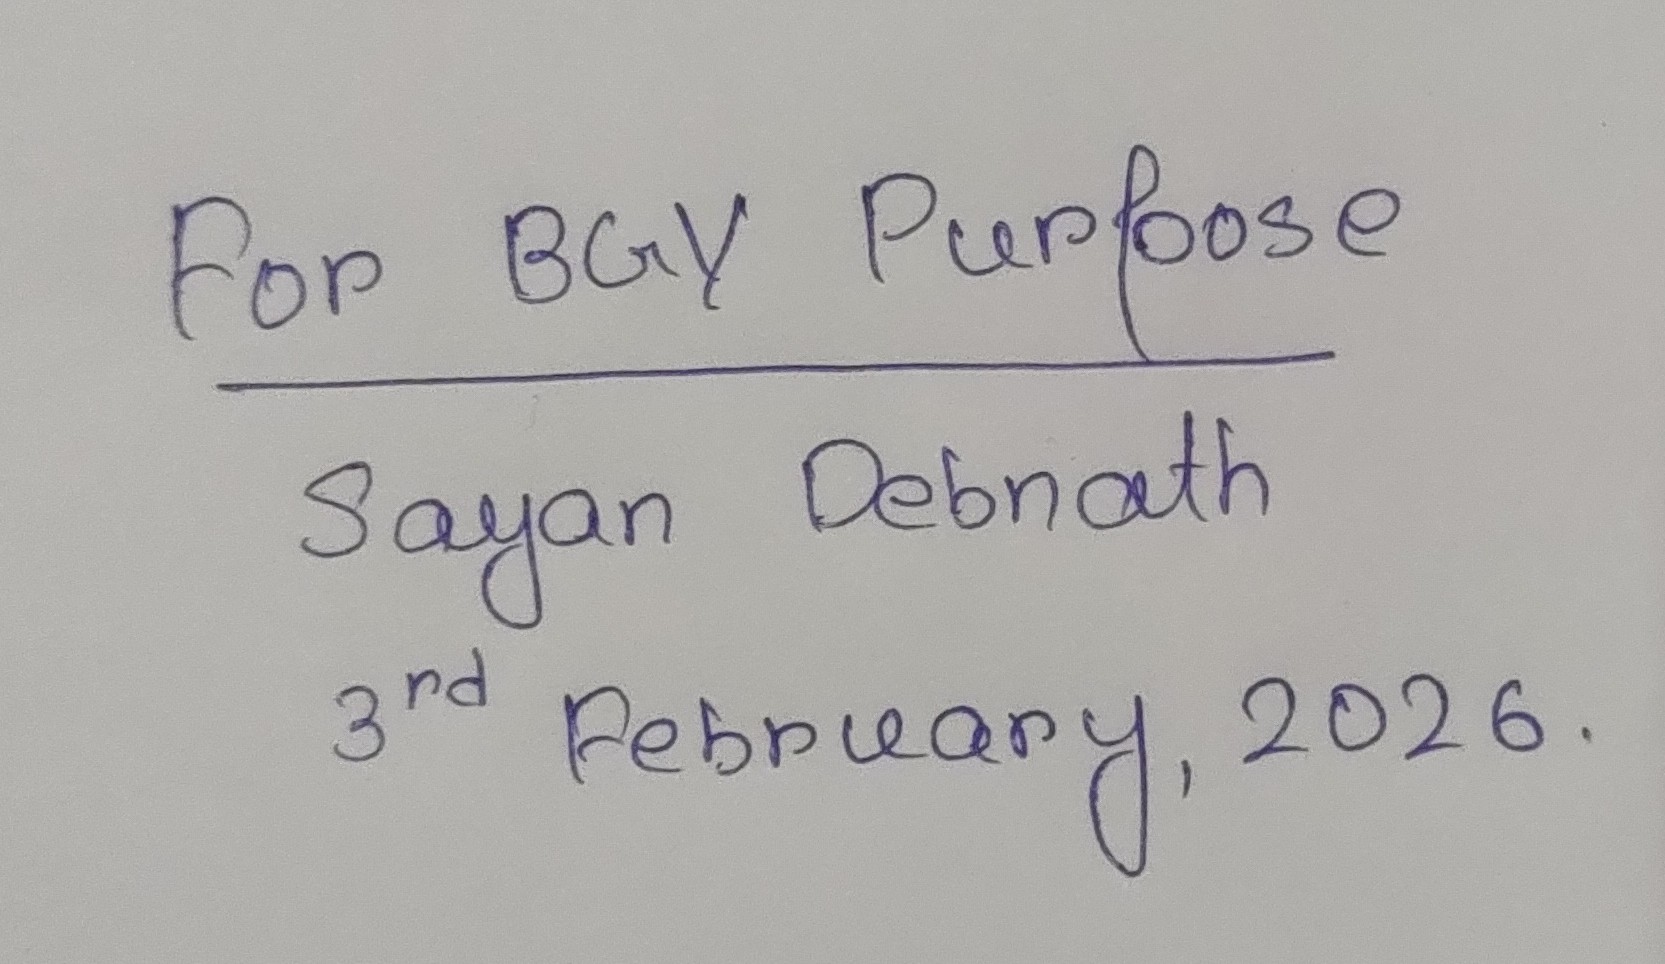 For BGV Purpose
Sayan Debnath
3rd February, 2026.